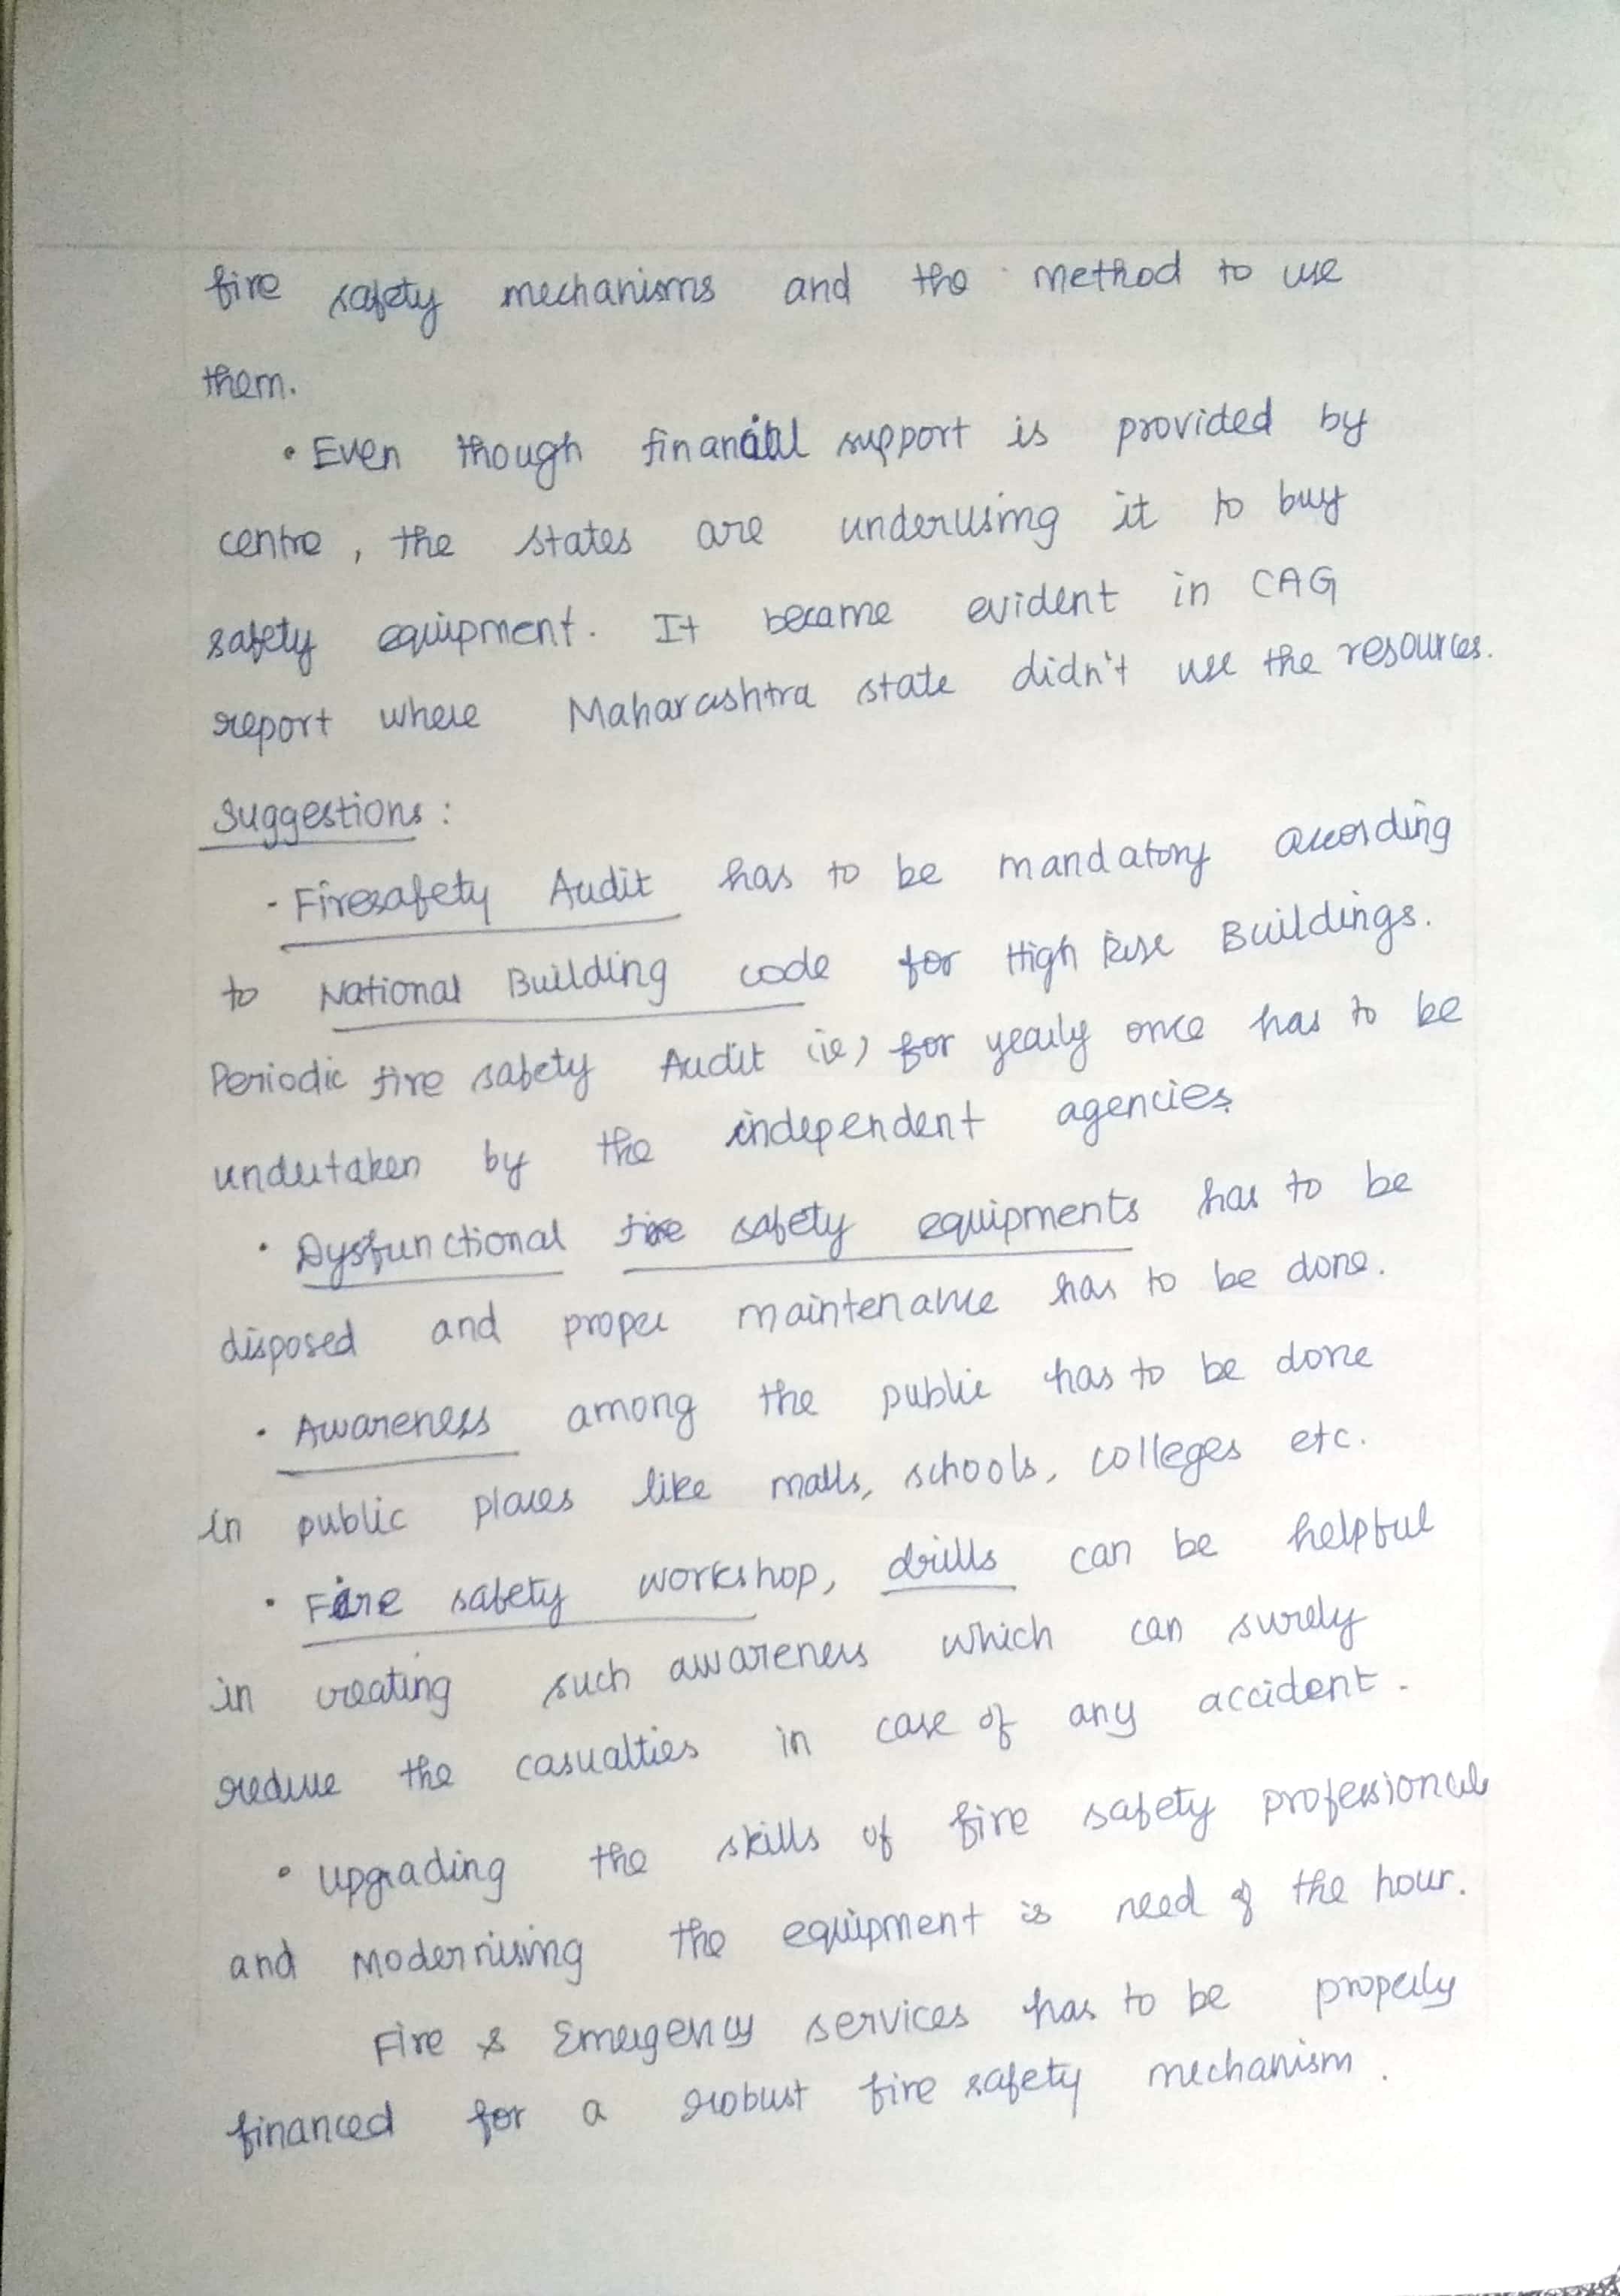 fire safety mechanisms and the method to use
them.
• Even though financial support is provided by
centre, the states are underusing it to buy
safety equipment. It became evident in CAG
report where Maharashtra state didn't use the resources.
Suggestions:
- Firesafety Audit has to be mandatory according
to National Building code for High Rise Buildings.
Periodic fire safety Audit (ie) for yearly once has to be
undertaken by the independent agencies.
• Dysfunctional fire safety equipments has to be
disposed and proper maintenance has to be done.
• Awareness among the public has to be done
in public places like malls, schools, colleges etc.
• Fire safety workshop, drills can be helpful
in creating such awareness which can surely
reduce the casualties in case of any accident.
• Upgrading the skills of fire safety professionals
and Modernising the equipment is need of the hour.
Fire & Emergency services has to be properly
financed for a robust fire safety mechanism.